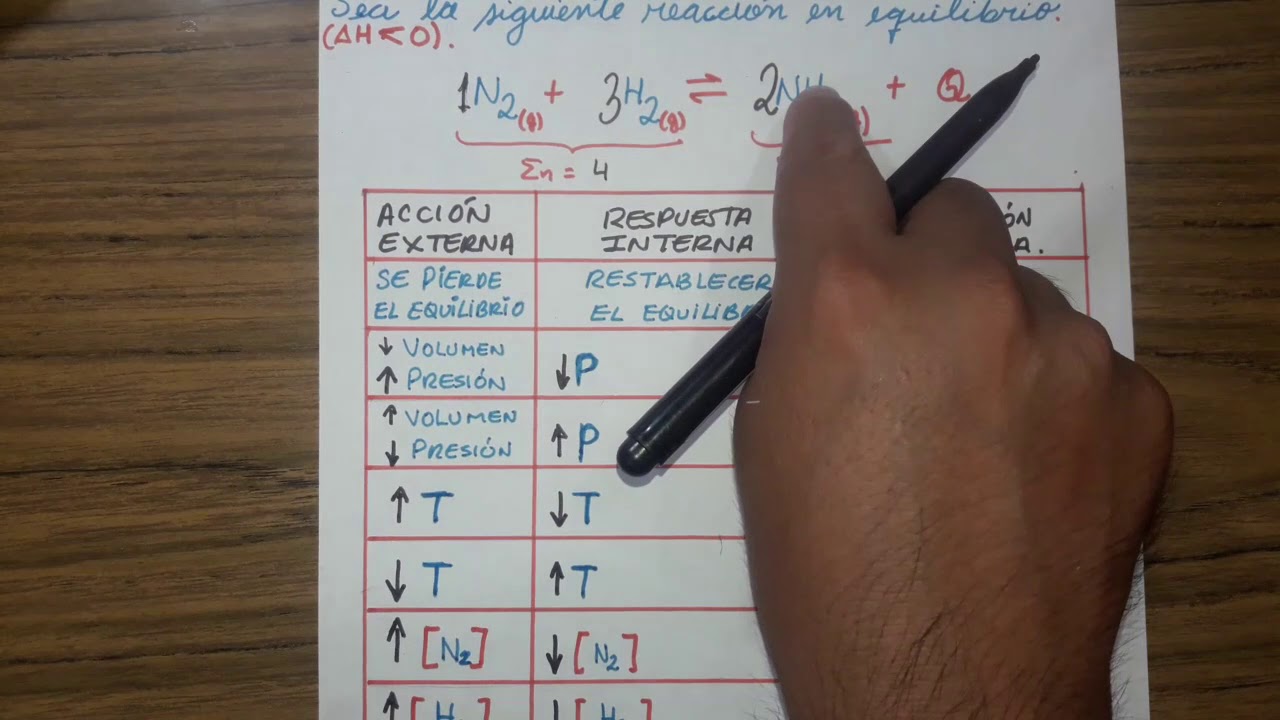 Sea la siguiente reacción en equilibrio.
(ΔH<0).
1N2(g) + 3H2(g) ⇌ 2NH + Q
Σn = 4
ACCIÓN EXTERNA
RESPUESTA INTERNA
SE PIERDE EL EQUILIBRIO
RESTABLECER EL
↓ VOLUMEN
↑ PRESIÓN
↓P
↑ VOLUMEN
↓ PRESIÓN
↑P
↑ T
↓T
↓ T
↑T
↑ [N2]
↓[N2]